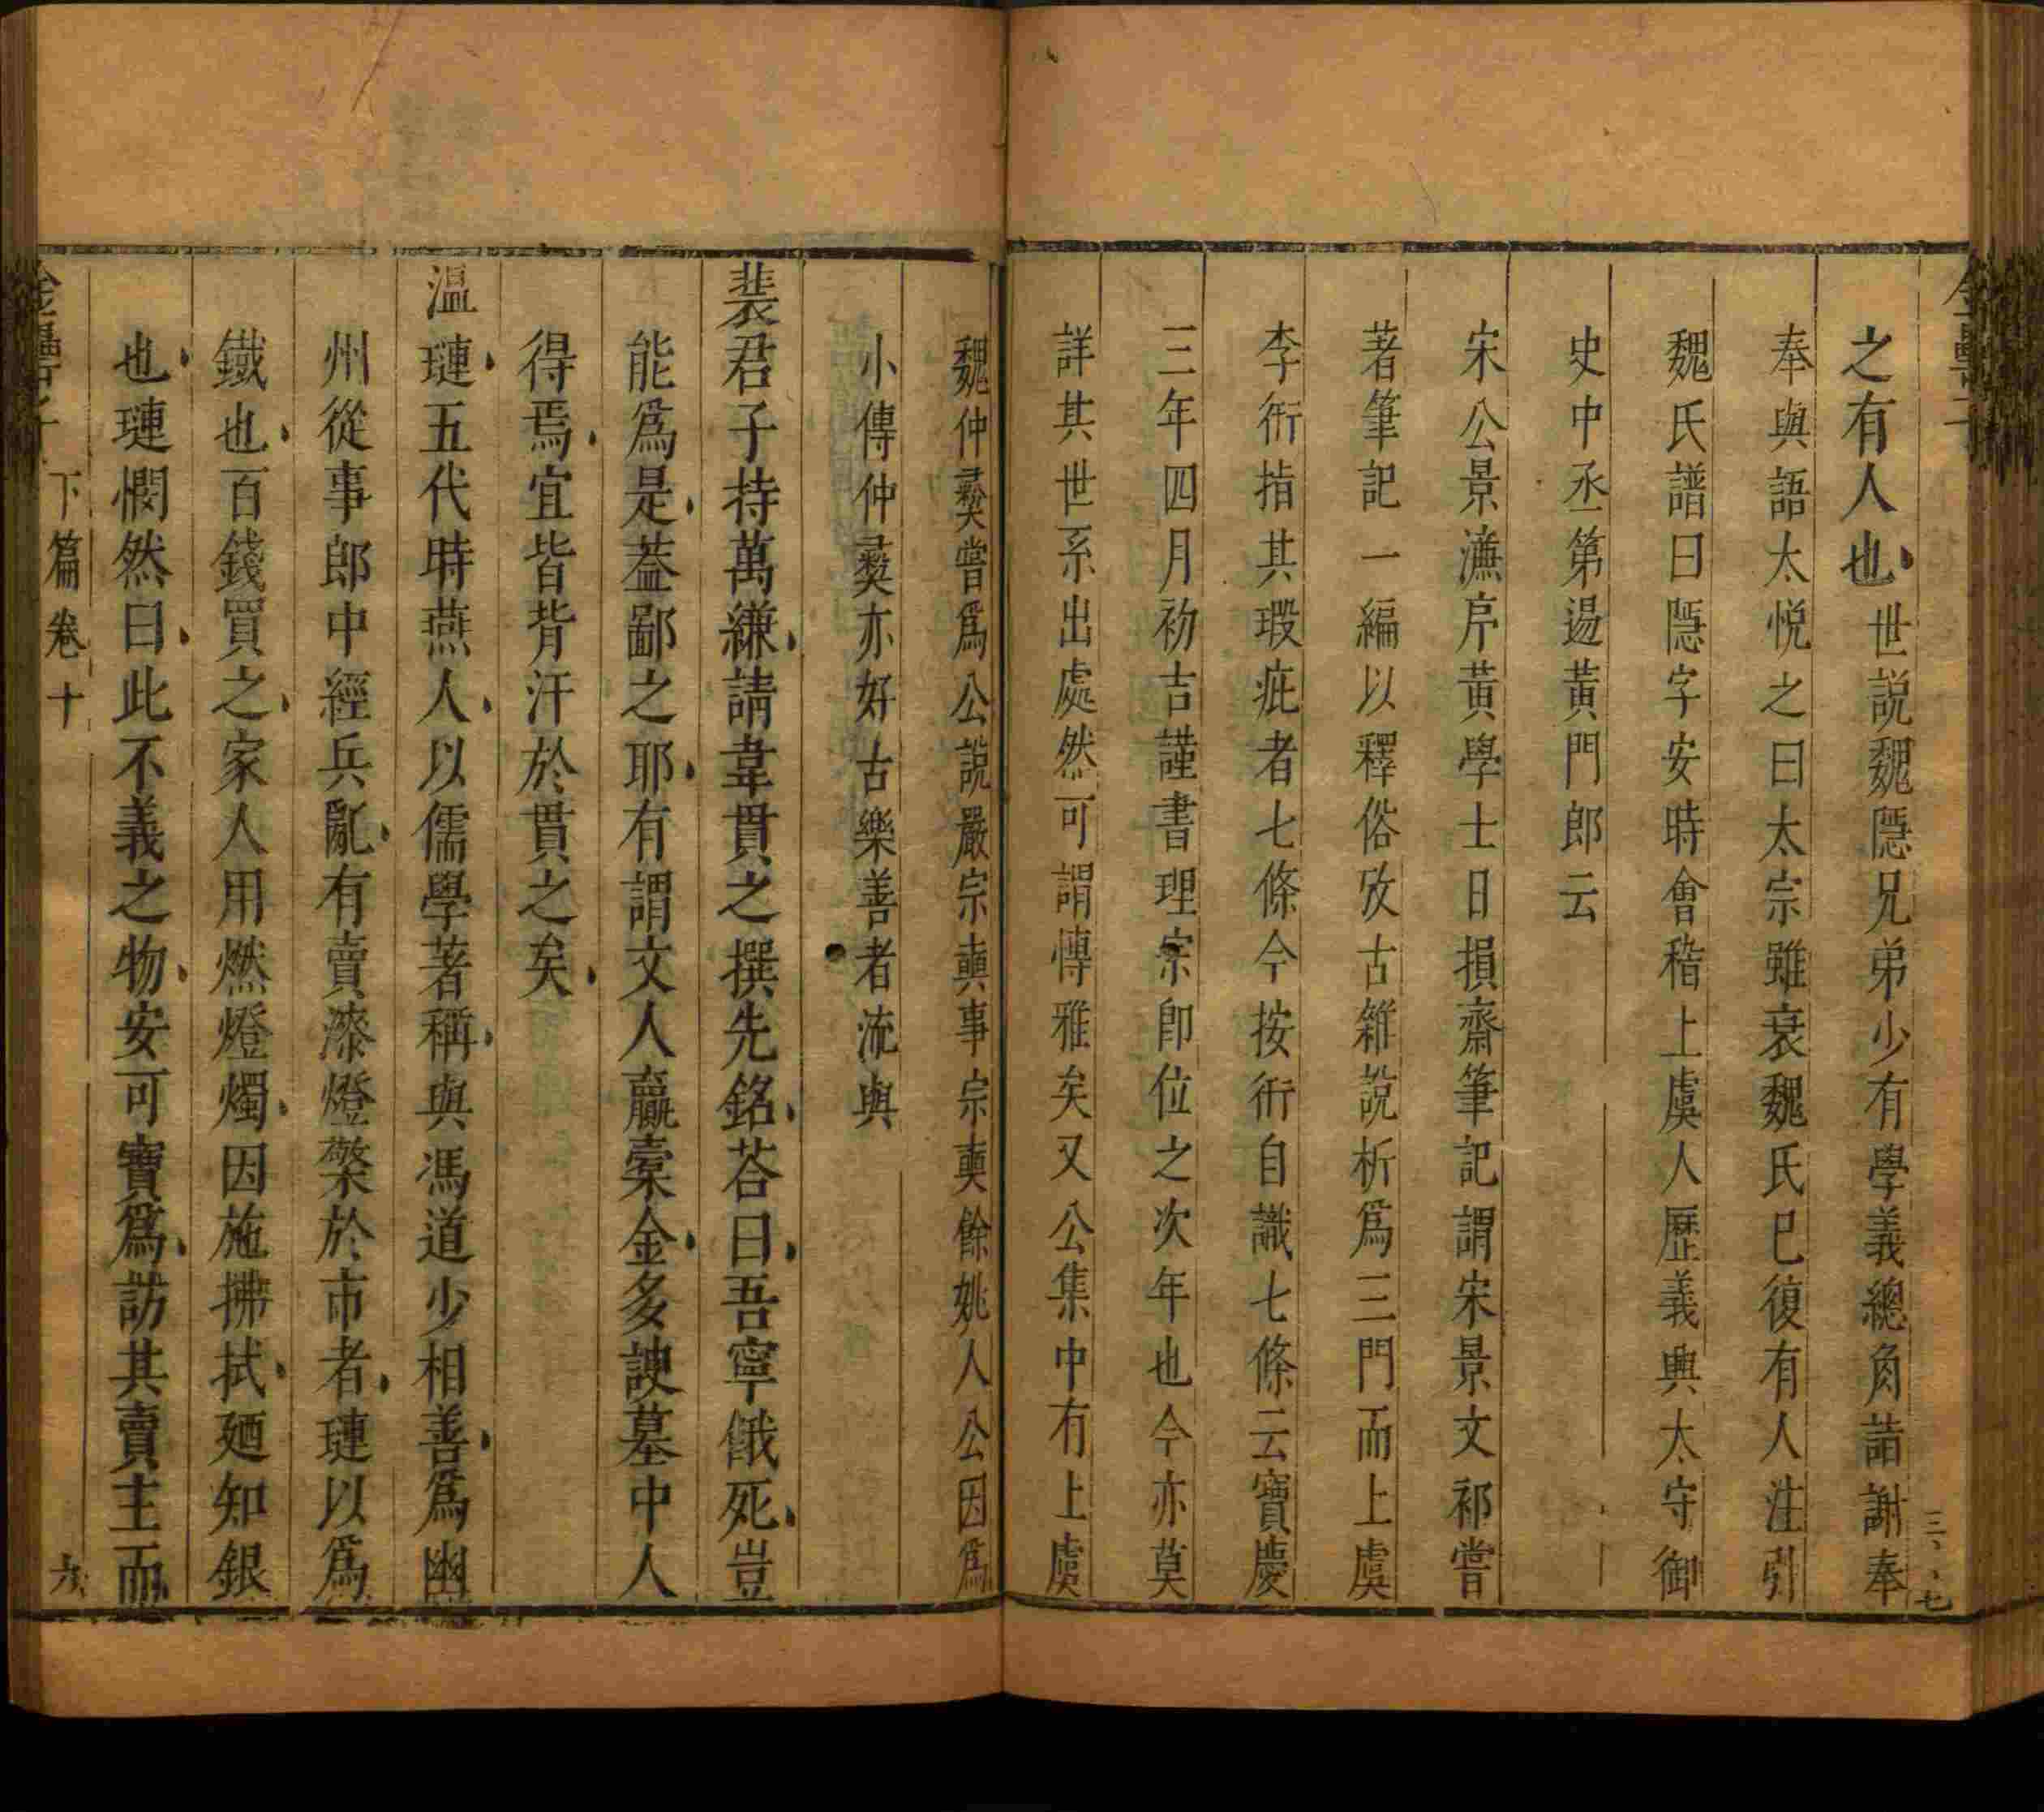 之有人也世説魏隱兄弟少有學義總角詣謝奉
奉與語太悅之曰太宗雖衰魏氏巳復有人注引
魏氏譜曰隱字安時會稽上虞人歷義興太守御
史中丞第逷黃門郎云
宋公景濓序黃學士日損齋筆記謂宋景文祁嘗
著筆記一編以釋俗攷古雜說析爲三門而上虞
李衎指其瑕疵者七條今按衎自識七條云寶慶
三年四月初吉謹書理宗卽位之次年也今亦莫
詳其世系出處然可謂愽雅矣又公集中有上虞
魏仲彛嘗爲公說嚴宗奭事宗奭餘姚人公因爲
小傳仲彛亦好古樂善者流與
裴君子持萬縑請韋貫之撰先銘荅曰吾寧餓死豈
能爲是葢鄙之耶有謂文人贏槖金多諛墓中人
得焉宜皆背汗於貫之矣
溫璉五代時燕人以儒學著稱與馮道少相善爲幽
州從事郎中經兵亂有賣漆燈檠於市者璉以爲
鐵也百錢買之家人用燃燈燭因施拂拭廼知銀
也璉憫然曰此不義之物安可寶爲訪其賣主而
金罍子
下篇卷十
六